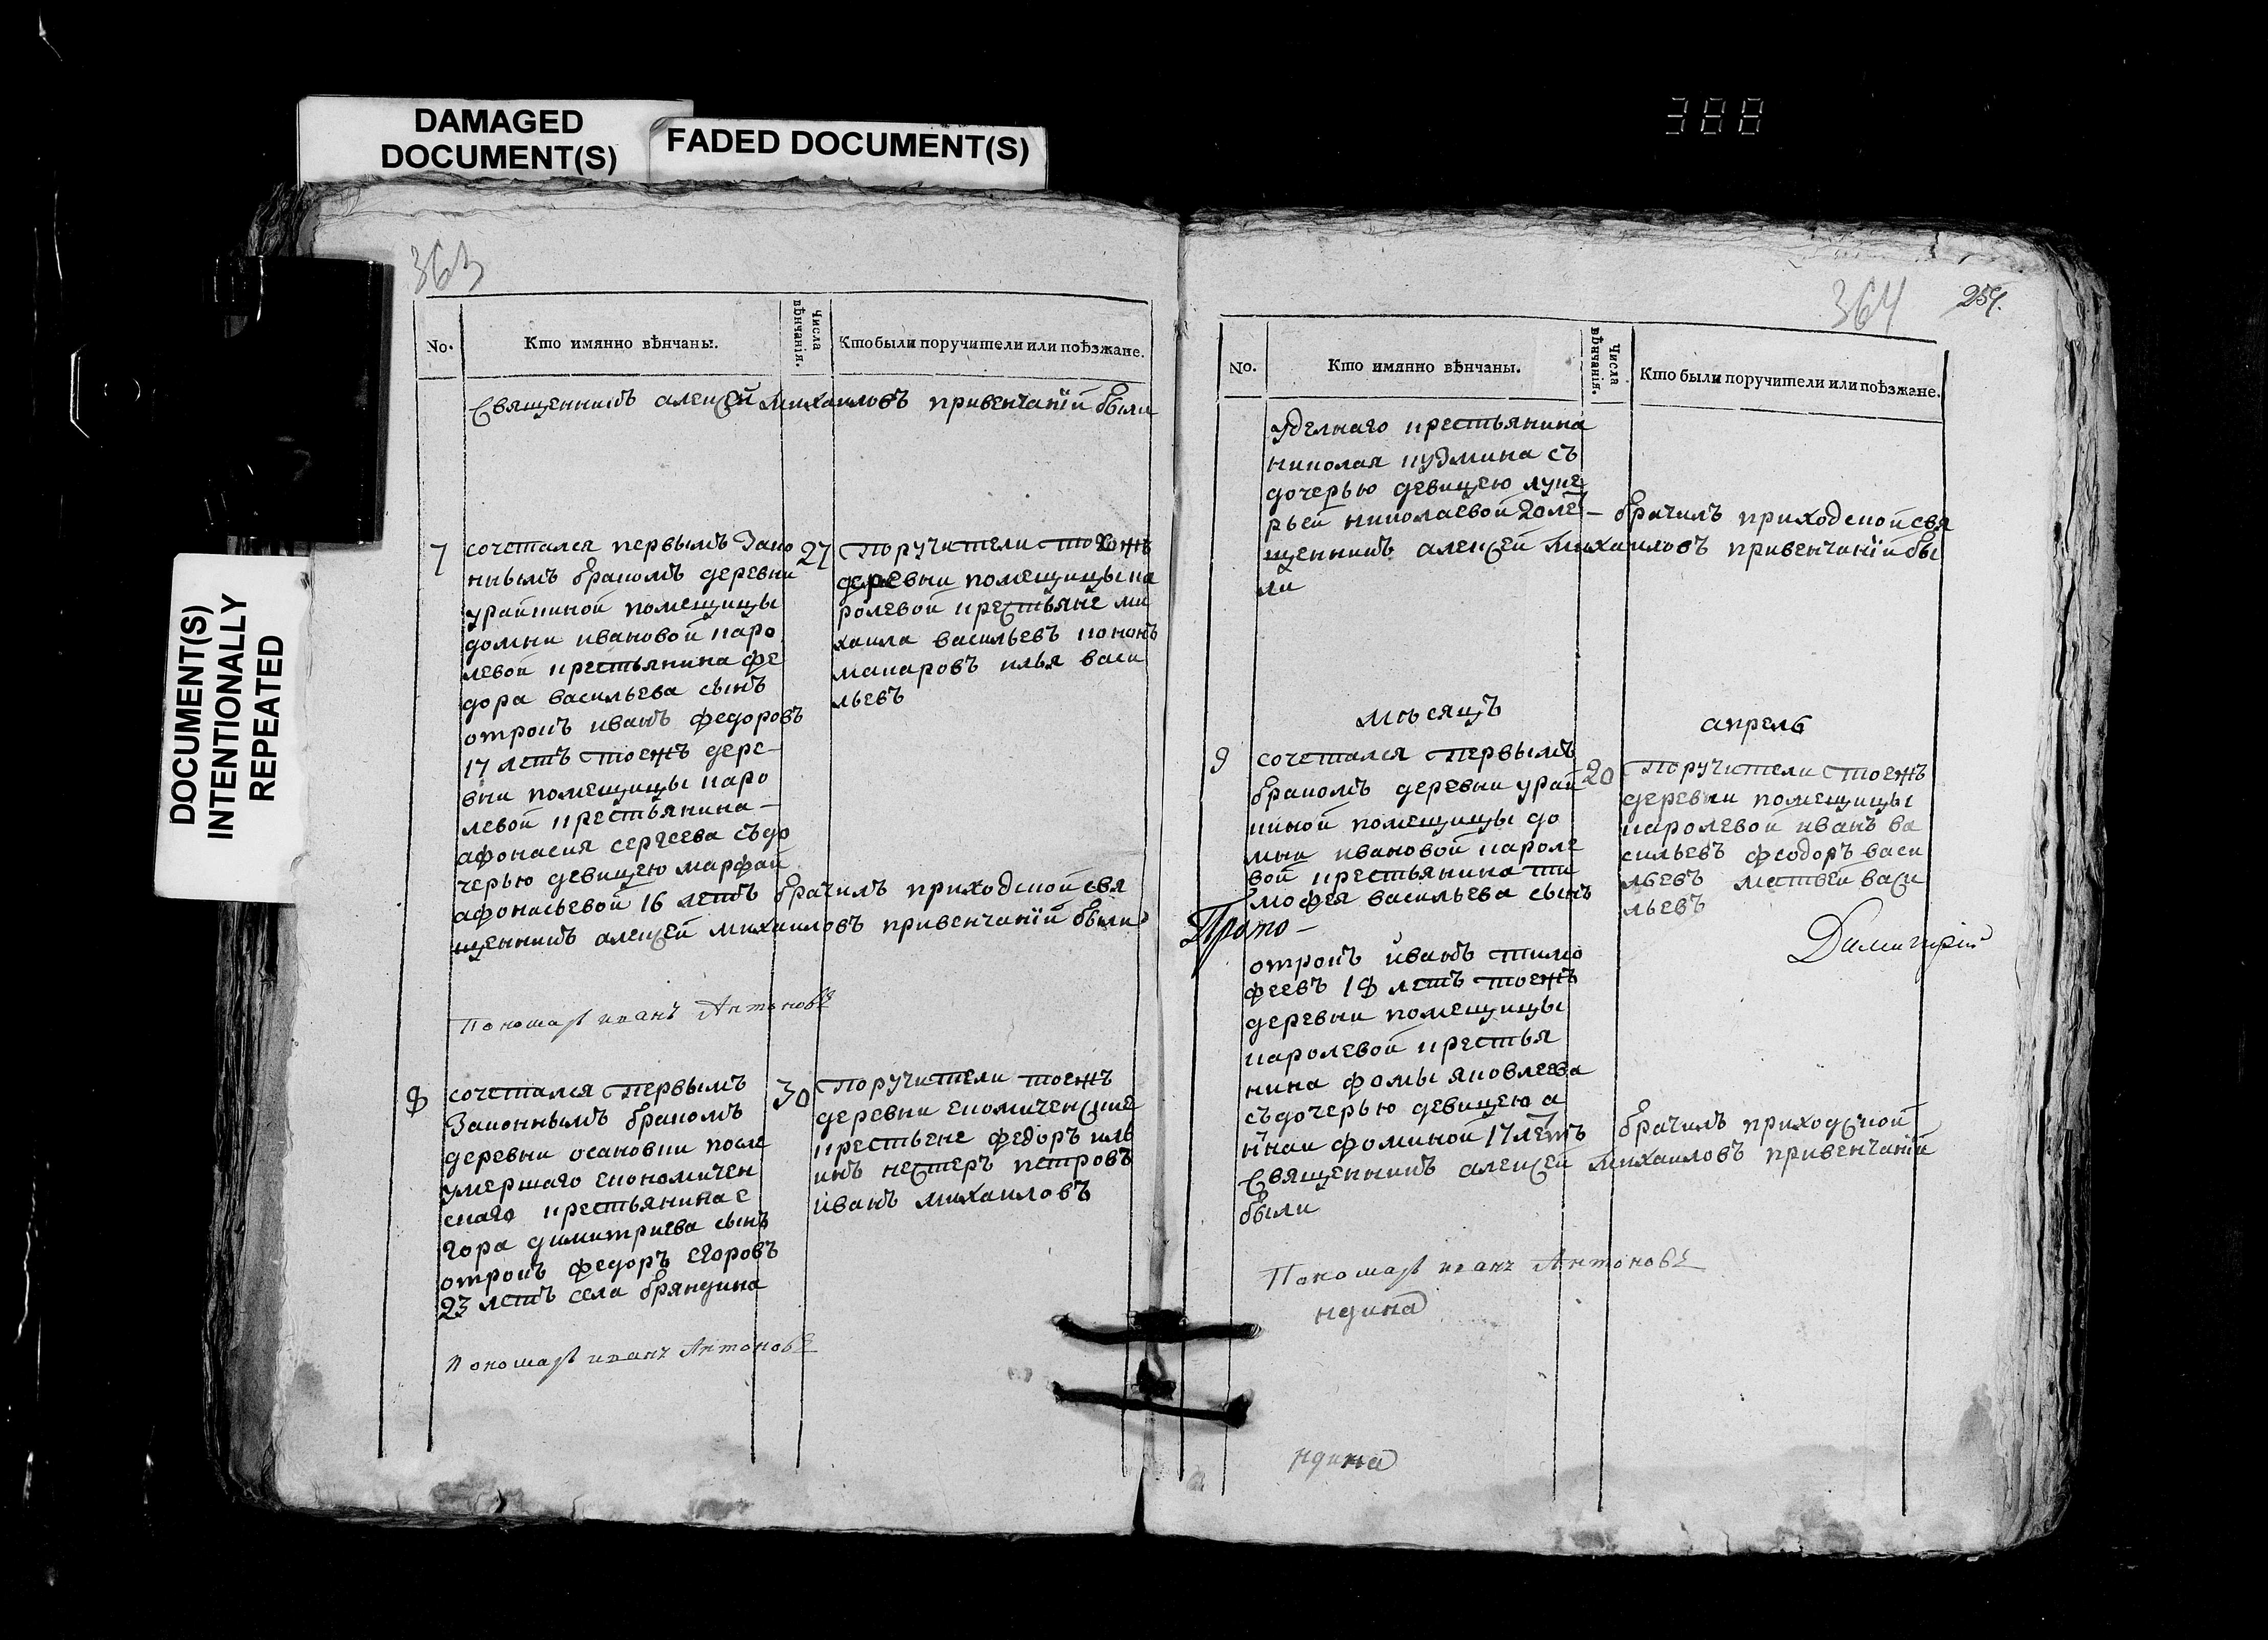 388
DAMAGED
DOCUMENT(S)
FADED DOCUMENT(S)
DOCUMENT(S)
INTENTIONALLY
REPEATED
363
No.
Кто имянно вѣнчаны.
Числа
вѣнчанія.
Кто были поручители или поѣзжане.
Священникъ алексей михаиловъ привенчанїй были
7
сочетался первымъ зако
ннымъ бракомъ деревни
урайкиной помещицы
домны ивановой каро
левой крестьянина фе
дора васильева сынъ
отрокъ иванъ федоровъ
17 летъ тоежъ дере-
вни помещицы каро
левой крестьянина-
афонасия сергеева съдо
черью девицею марфой
афонасьевой 16 летъ брачилъ приходской свя
щенникъ алексей михаиловъ привенчанїй были
27
Поручители тоежъ
деревни помещицы ка
ролевой крестьяне ми
хаила васильевъ кононъ
макаровъ илья васи
льевъ
Пономарь иванъ Антоновъ
8
сочетался первымъ
законнымъ бракомъ
деревни осановки после
умершаго економичен
скаго крестьянина е
гора димитриева сынъ
отрокъ федоръ егоровъ
23 летъ села бряндина
30
Поручители тоежъ
деревни економиченские
крестьене федоръ иль
инъ нестеръ петровъ
иванъ михаиловъ
Пономарь иванъ Антоновъ
364
257.
No.
Кто имянно вѣнчаны.
Числа
вѣнчанія.
Кто были поручители или поѣзжане.
уделнаго крестьянина
николая кузмина съ
дочерью девицею луке
рьей николаевой 20 ле- брачилъ приходской свя
щенникъ алексей михаиловъ привенчанїй бы
ли
мѣсяцъ
апрель
9
сочетался первымъ
бракомъ деревни урай
киной помещицы до
мны ивановой кароле
вой крестьянина ти
мофея васильева сынъ
Прото-
отрокъ иванъ тимо
феевъ 18 летъ тоежъ
деревни помещицы
каролевой крестья
нина фомы яковлева
съдочерью девицею а
нной фоминой 17 летъ брачилъ приходской
Священникъ алексей михаиловъ привенчанїй
были
20
Поручители тоежъ
деревни помещицы
каролевой иванъ ва
сильевъ феодоръ васи
льевъ матвей васи
льевъ
Димитрій
Пономарь иванъ Антоновъ
ндина
ндина